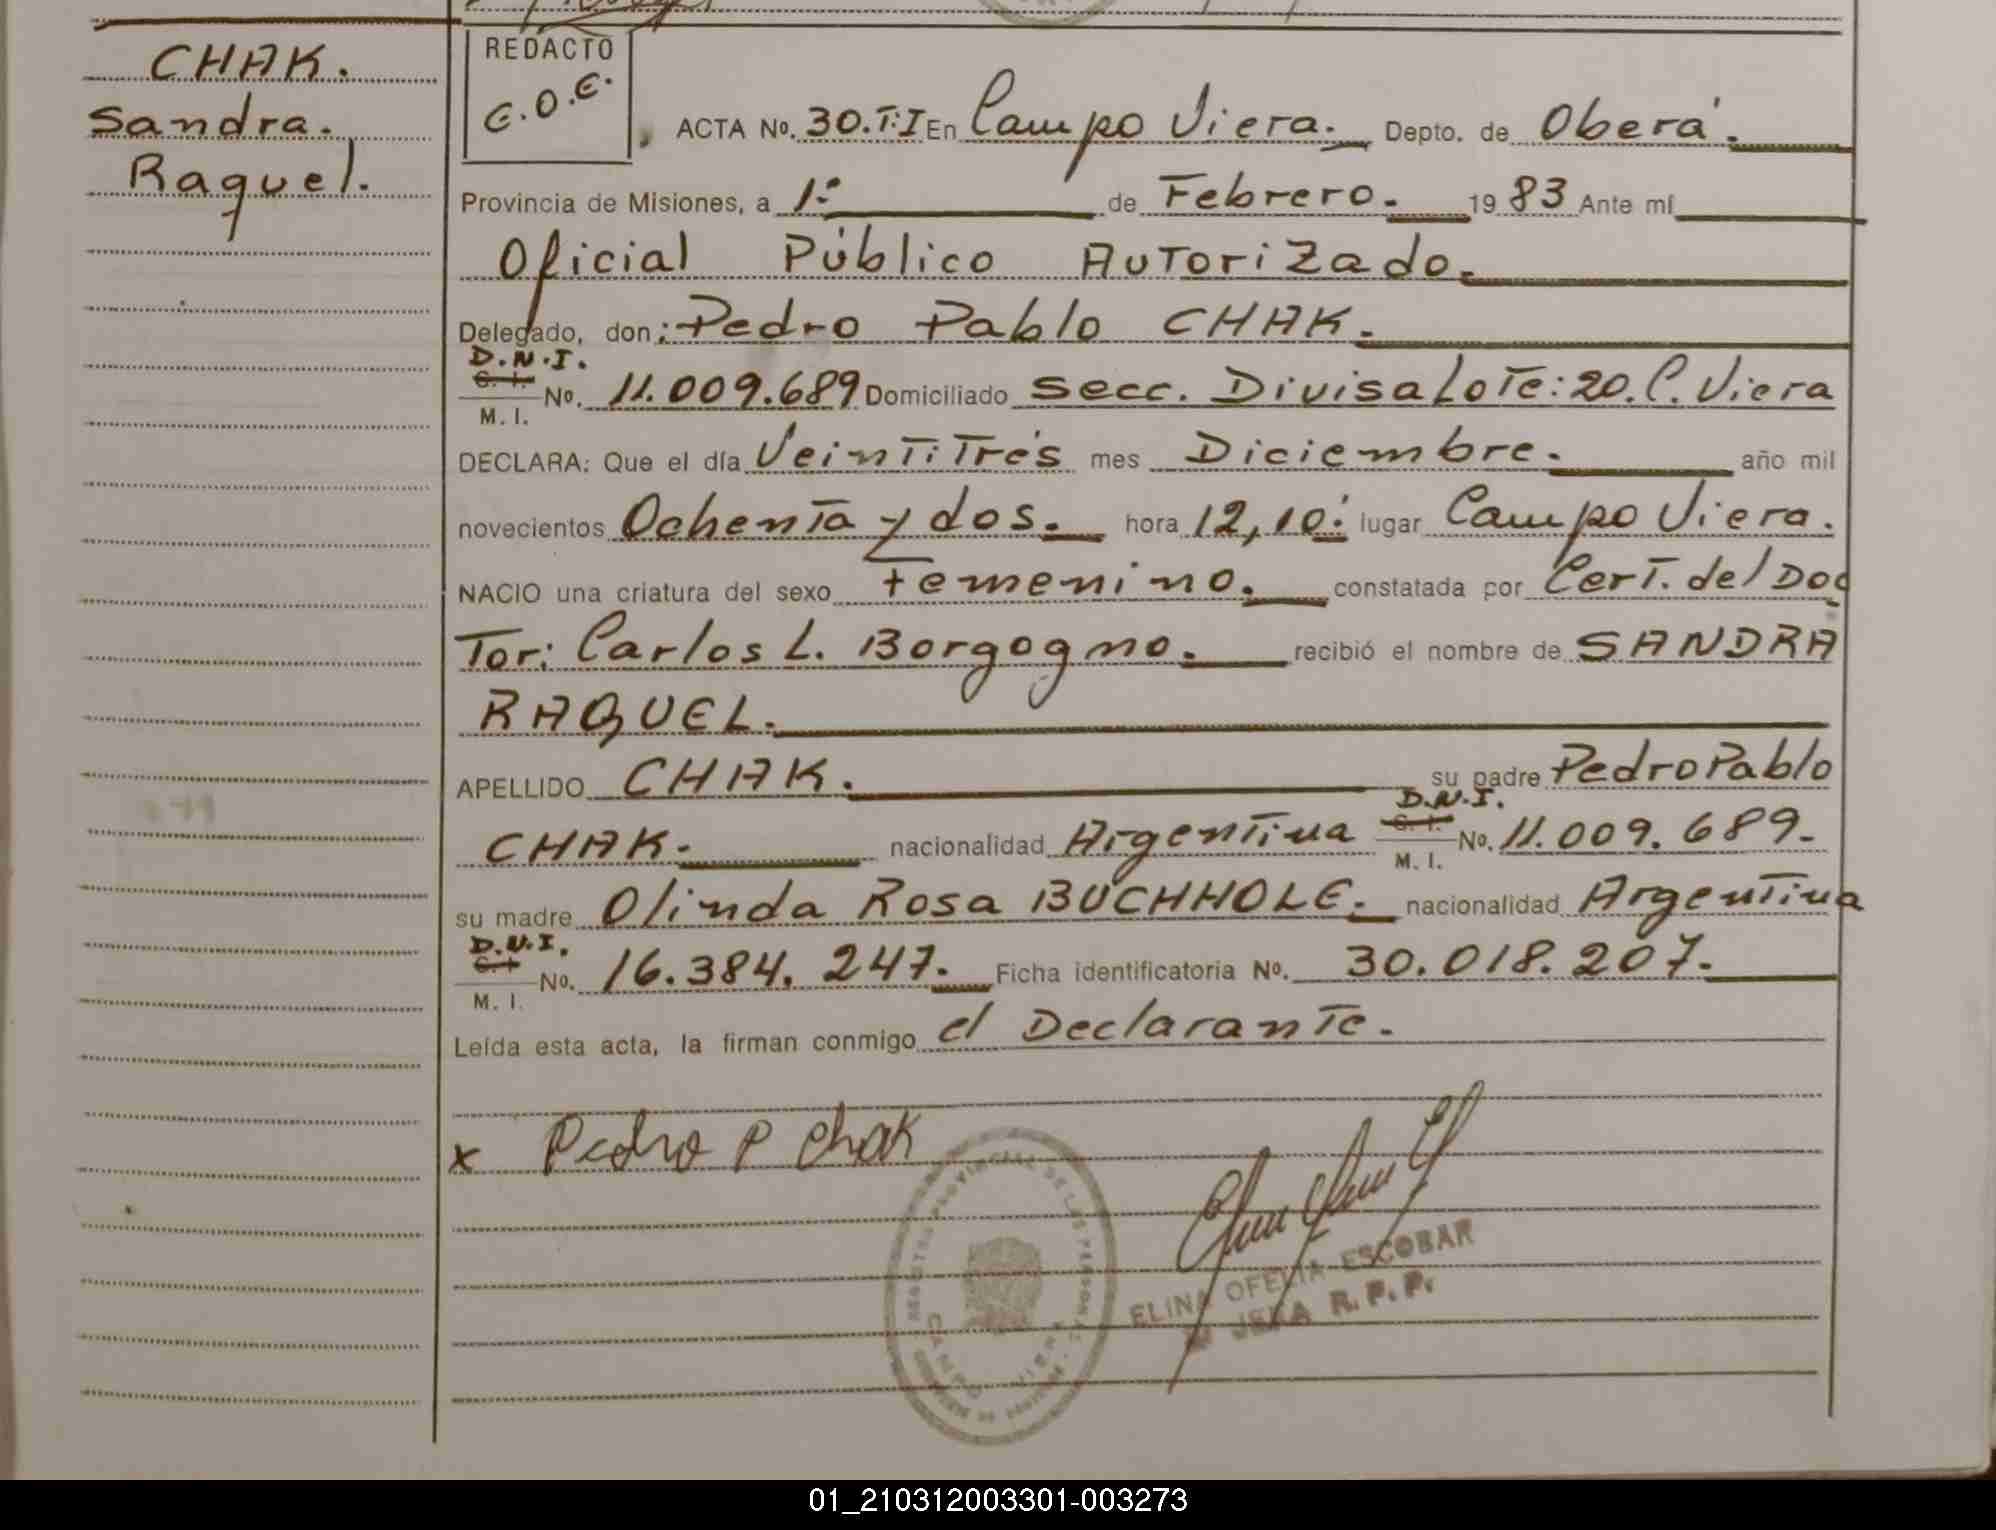 CHAK.
Sandra.
Raquel.
REDACTO
E.O.E.
ACTA No. 30.T:I En Campo Viera. Depto. de Oberá.
Provincia de Misiones, a 1: de Febrero. 1983 Ante mí
Oficial Público Autorizado.
Delegado, don: Pedro Pablo CHAK.
D.N.I.
C. I.
M. I. No. 11.009.689 Domiciliado Secc. Divisa Lote: 20. C. Viera
DECLARA: Que el día Veintitrés mes Diciembre. año mil
novecientos Ochenta y dos. hora 12,10: lugar Campo Viera.
NACIO una criatura del sexo femenino. constatada por Cert. del Doc
Tor: Carlos L. Borgogno. recibió el nombre de SANDRA
RAQUEL.
APELLIDO CHAK. su padre Pedro Pablo
CHAK. nacionalidad Argentina D.N.I. C. I. M. I. No. 11.009.689.
su madre Olinda Rosa BUCHHOLE. nacionalidad Argentina
D.N.I.
C. I.
M. I. No. 16.384.247. Ficha identificatoria No. 30.018.207.
Leída esta acta, la firman conmigo el Declarante.
x Pedro P Chak
REGISTRO PROVINCIAL DE LAS PERSONAS
CAMPO VIERA
ELINA OFELIA ESCOBAR
JEFA R. P. P.
01_210312003301-003273